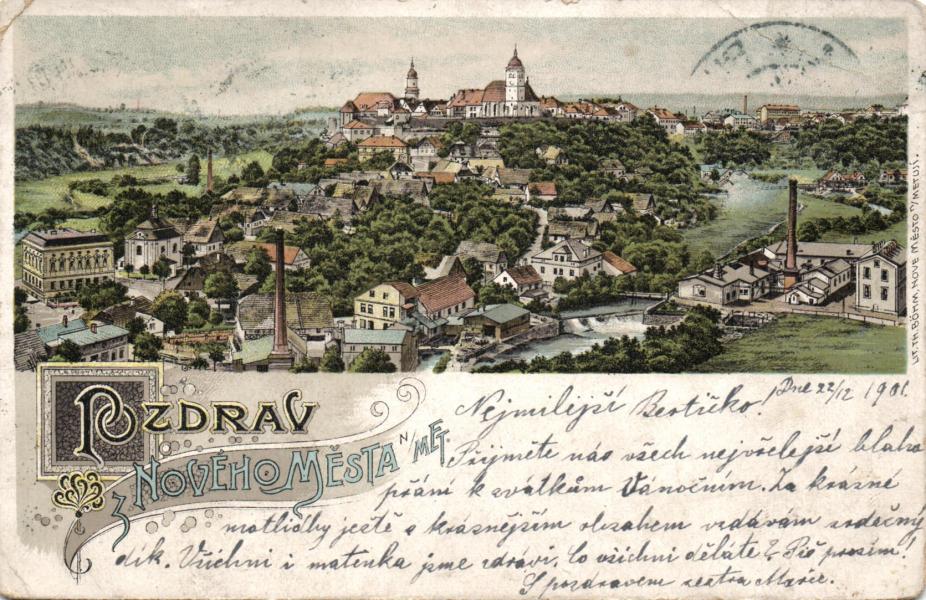 LIT. TH. BÖHM, NOVÉ MĚSTO n/METUJÍ.
POZDRAV
z NOVÉHO MĚSTA N/MET.
Dne 22/12 1901.
Nejmilejší Bertičko!
Přijměte nás všech nejvřelejší blaho
přání k svátkům Vánočním. Za krásné
ještě s krásnějším obsahem vzdávám srdečný
dík. Všichni i matenka jsme zdrávi. Co všichni děláte? Piš prosím!
S pozdravem sestra